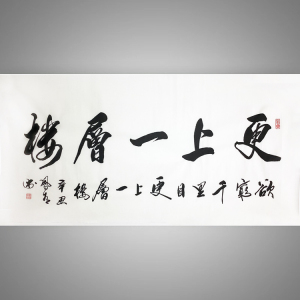 更上一層楼
欲窮千里目更上一層楼
辛丑